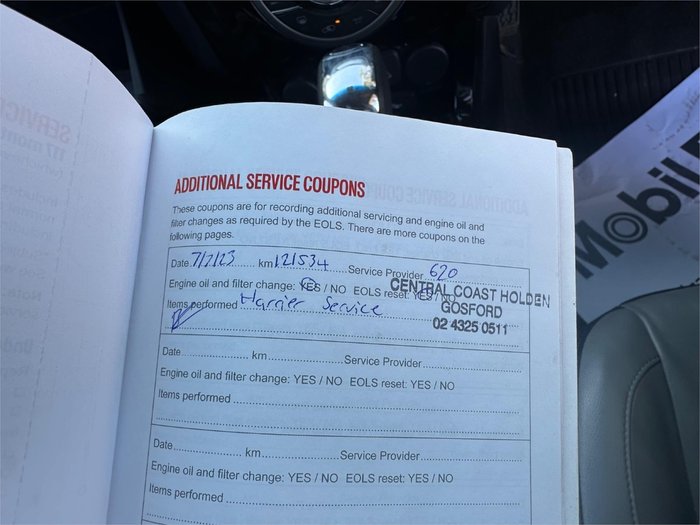 ADDITIONAL SERVICE COUPONS
These coupons are for recording additional servicing and engine oil and
filter changes as required by the EOLS. There are more coupons on the
following pages.
Date 7/7/23 km 121534 Service Provider 620
Engine oil and filter change: YES / NO EOLS reset: YES / NO
CENTRAL COAST HOLDEN
GOSFORD
02 4325 0511
Items performed Harrier Service
Date km Service Provider
Engine oil and filter change: YES / NO EOLS reset: YES / NO
Items performed
Date km Service Provider
Engine oil and filter change: YES / NO EOLS reset: YES / NO
Items performed
SERVICE
Mobil